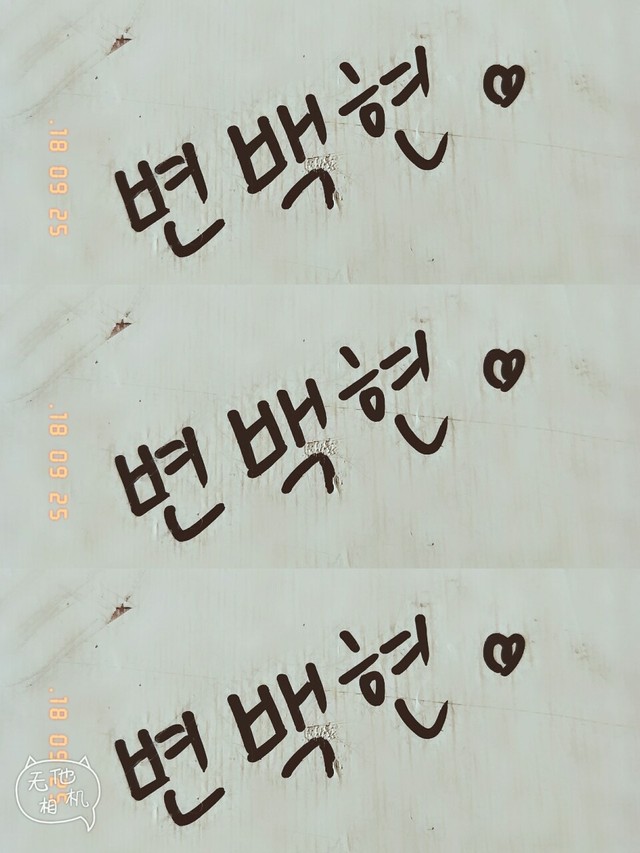 변백현♡
.18 09 25
변백현♡
.18 09 25
변백현♡
.18 09 25
无他
相机